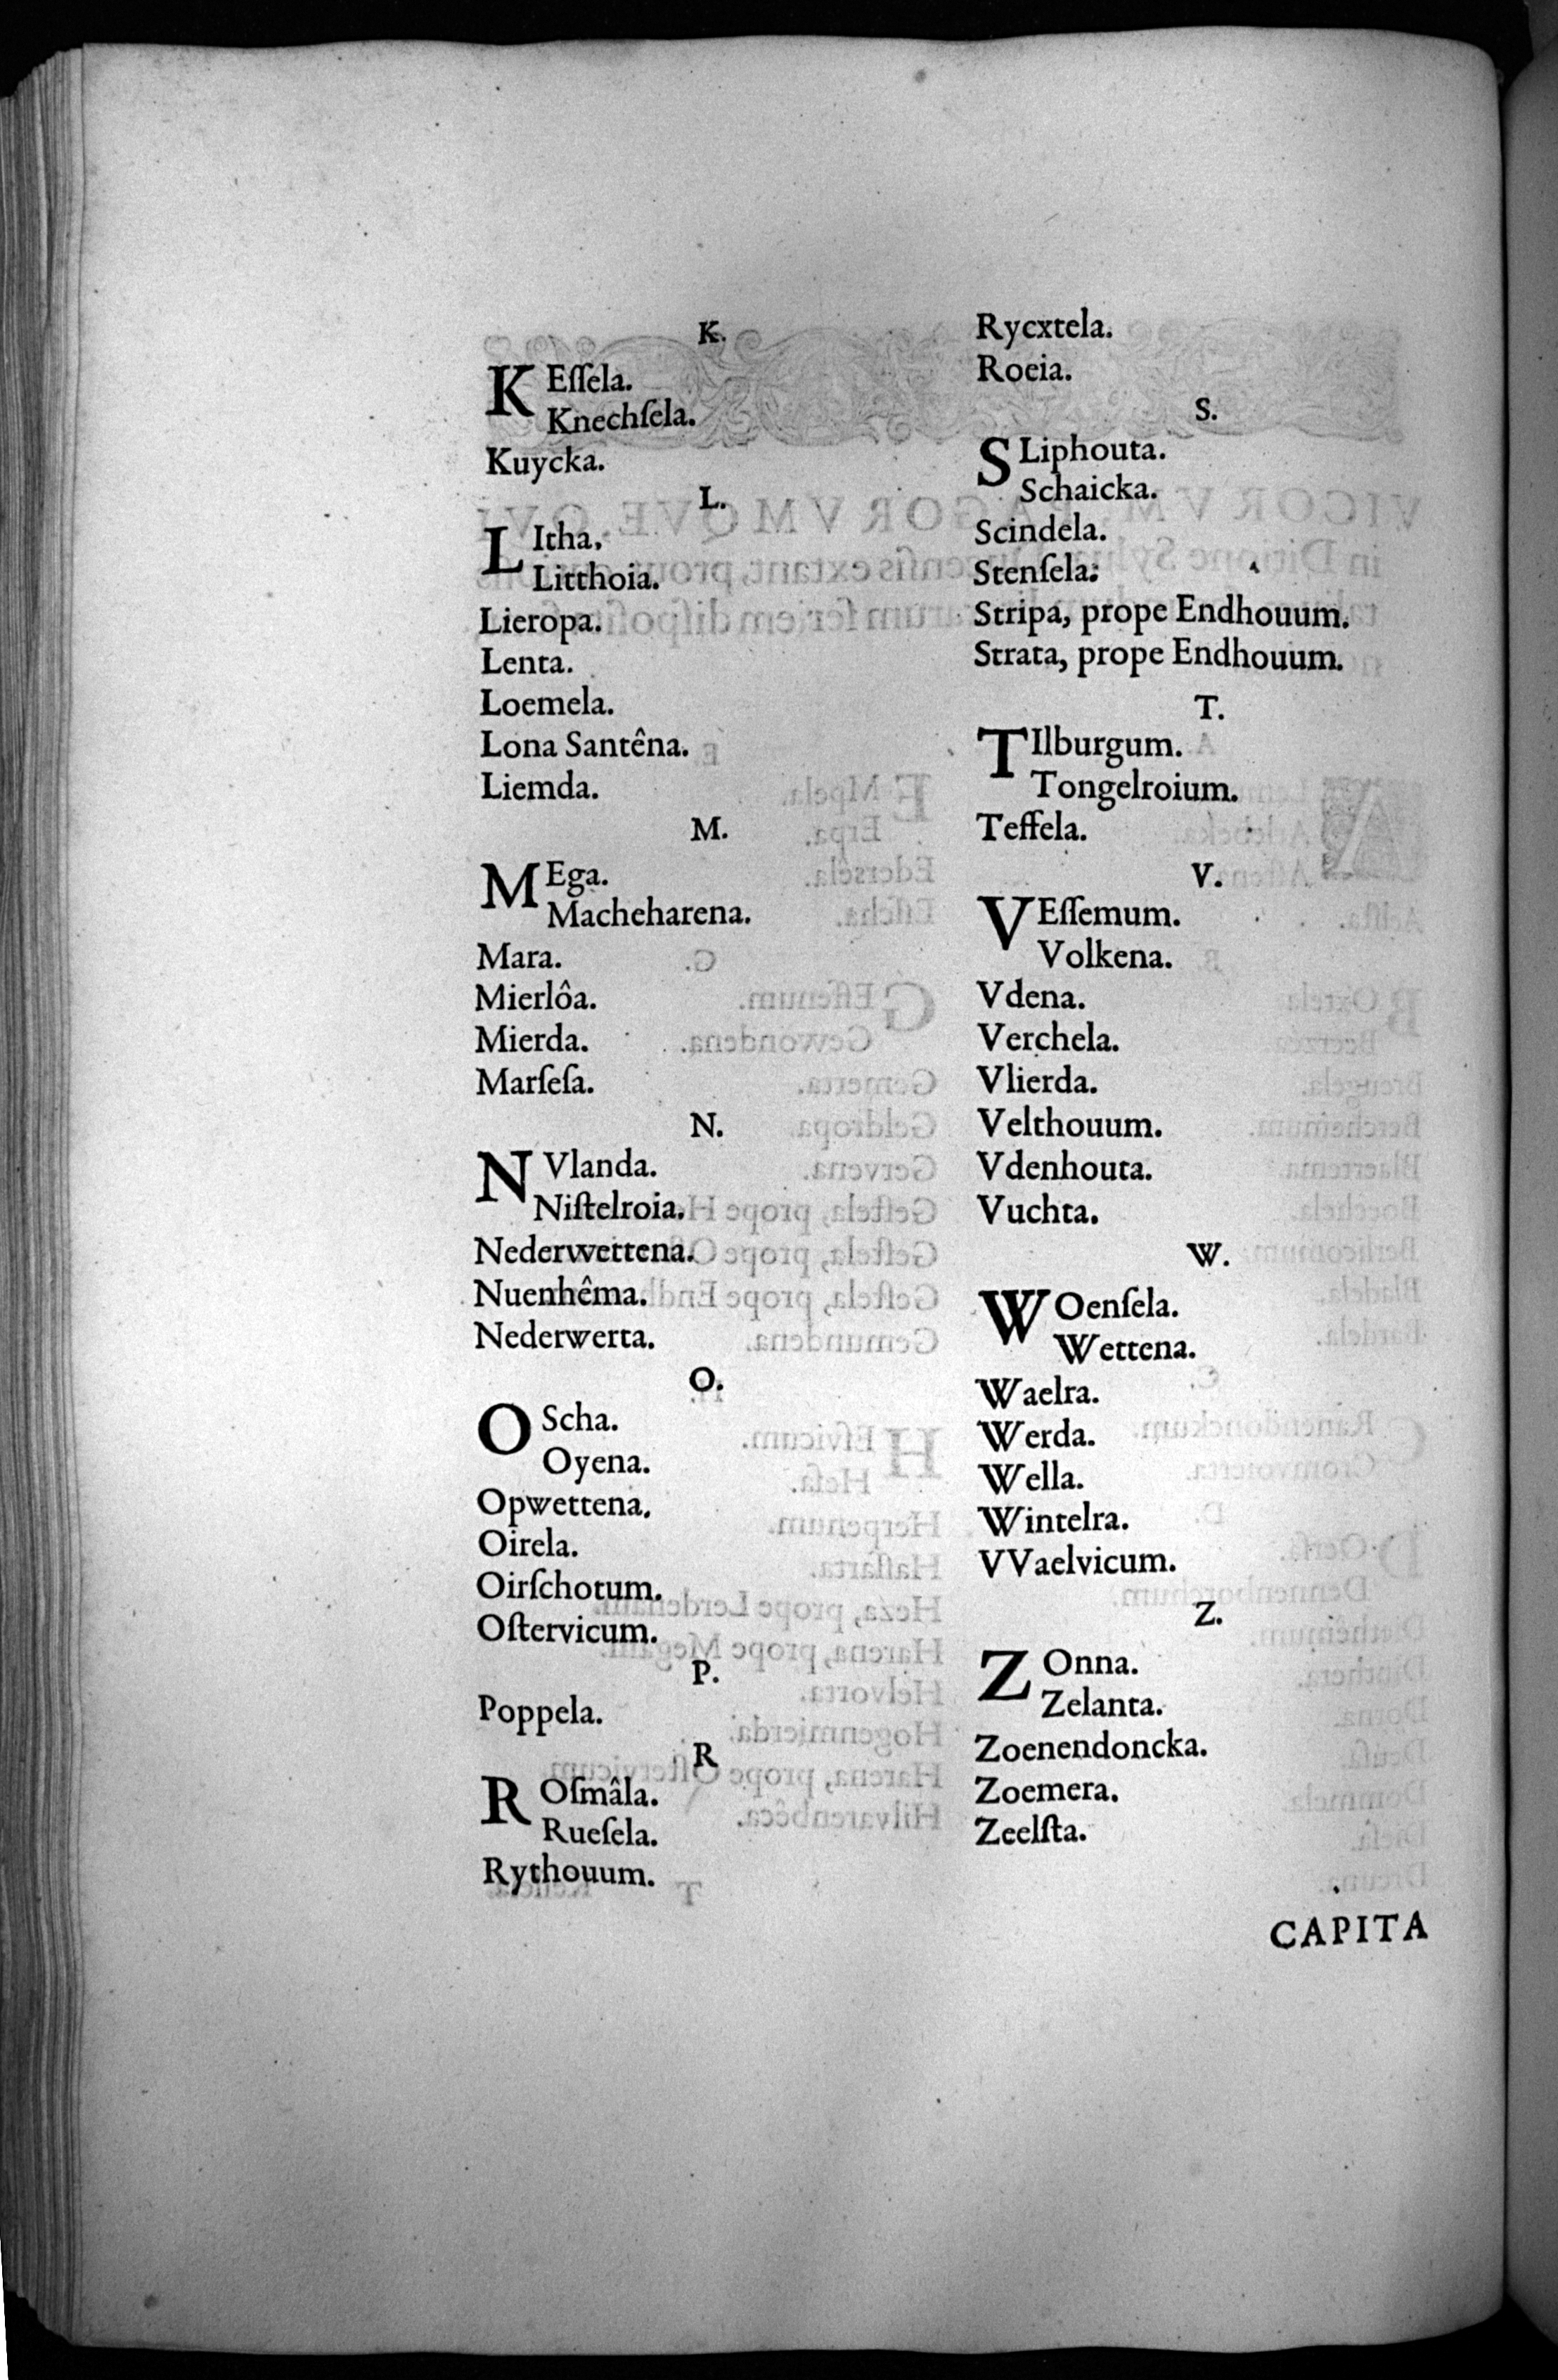 K.
KEſſela.
Knechſela.
Kuycka.
L.
LItha.
Litthoia.
Lieropa.
Lenta.
Loemela.
Lona Santêna.
Liemda.
M.
MEga.
Macheharena.
Mara.
Mierlôa.
Mierda.
Marſeſa.
N.
NVlanda.
Niſtelroia.
Nederwettena.
Nuenhêma.
Nederwerta.
O.
OScha.
Oyena.
Opwettena.
Oirela.
Oirſchotum.
Oſtervicum.
P.
Poppela.
R
ROſmâla.
Rueſela.
Rythouum.
Rycxtela.
Roeia.
S.
SLiphouta.
Schaicka.
Scindela.
Stenſela:
Stripa, prope Endhouum.
Strata, prope Endhouum.
T.
TIlburgum.
Tongelroium.
Teffela.
V.
VEſſemum.
Volkena.
Vdena.
Verchela.
Vlierda.
Velthouum.
Vdenhouta.
Vuchta.
W.
WOenſela.
Wettena.
Waelra.
Werda.
Wella.
Wintelra.
VVaelvicum.
Z.
ZOnna.
Zelanta.
Zoenendoncka.
Zoemera.
Zeelſta.
CAPITA